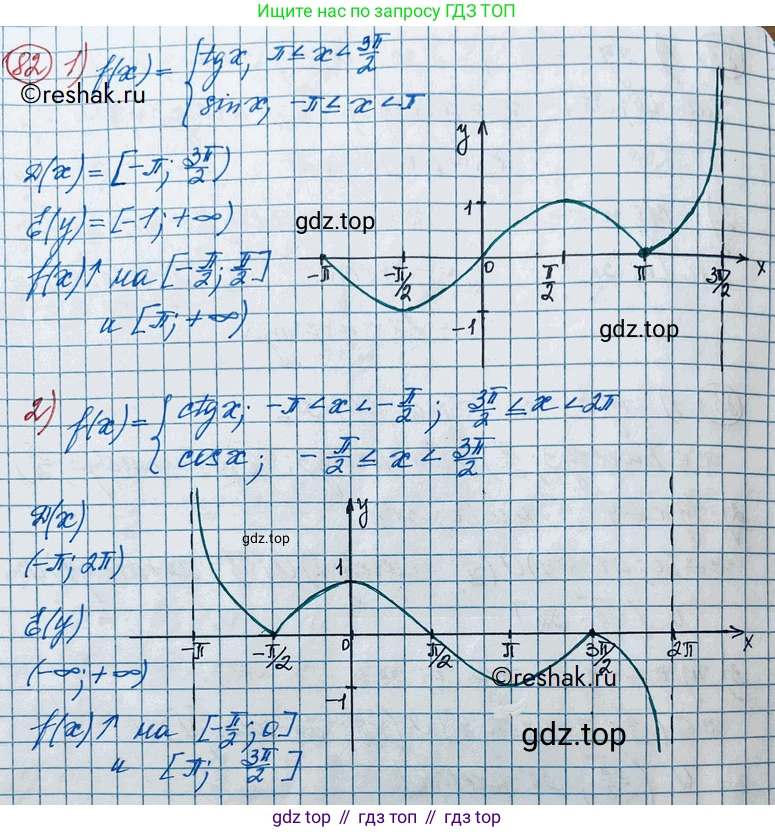 Ищите нас по запросу ГДЗ ТОП
82 1) f(x) = { tgx, π ≤ x < 3π/2
sinx, -π ≤ x < π
©reshak.ru
Д(x) = [-π; 3π/2)
E(y) = [-1; +∞)
f(x)↑ на [-π/2; π/2]
и [π; +∞)
gdz.top
y
1
-π -π/2 0 π/2 π 3π/2 x
-1
gdz.top
2) f(x) = { ctgx; -π < x < -π/2; 3π/2 ≤ x < 2π
cosx; -π/2 ≤ x < 3π/2
Д(x)
(-π; 2π)
E(y)
(-∞; +∞)
f(x)↑ на [-π/2; 0]
и [π; 3π/2]
y
gdz.top
1
-π -π/2 0 π/2 π 3π/2 2π x
-1
©reshak.ru
gdz.top
gdz.top // гдз.топ // gdz.top